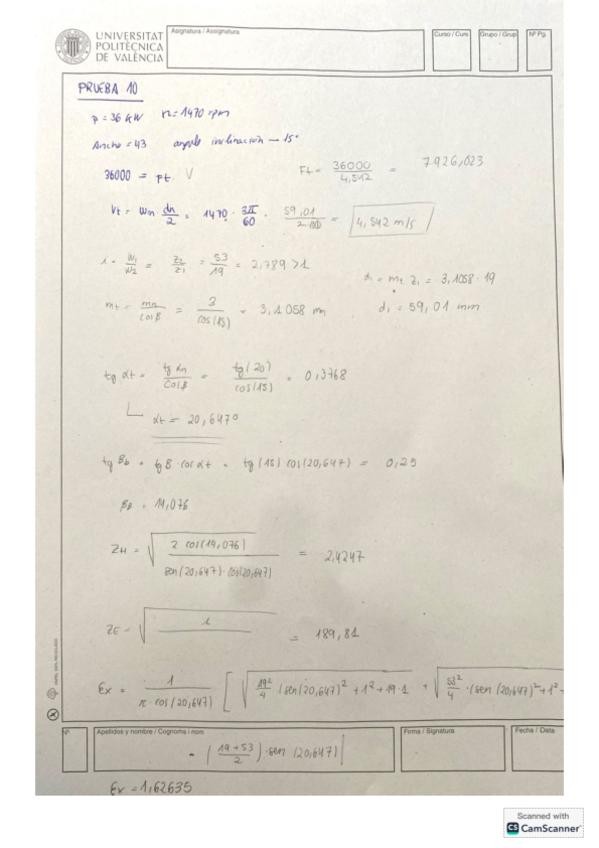 UNIVERSITAT
POLITÈCNICA
DE VALÈNCIA
Asignatura / Assignatura
Curso / Curs
Grupo / Grup
Nº Pg.
PRUEBA 10
P = 36 kW n = 1470 rpm
Ancho = 43 angulo inclinación → 15°
36000 = Pt. V
Ft = 36000 / 4,542 = 7926,023
Vt = Wn · dn/2 = 1470 · 2π/60 · 59,01 / 2·1000 = 4,542 m/s
i = W1/W2 = Z2/Z1 = 53/19 = 2,789 > 1
d1 = mt z1 = 3,1058 · 19
mt = mn / cosβ = 3 / cos(15) = 3,1058 mm
d1 = 59,01 mm
tg αt = tg αn / cosβ = tg(20) / cos(15) = 0,3768
αt = 20,647°
tg βb = tgβ · cos αt = tg(15) cos(20,647) = 0,25
βb = 14,076
ZH = √ 2 cos(14,076) / sen(20,647)·cos(20,647) = 2,4247
ZE = √ 1 / = 189,81
Ex = 1 / π·cos(20,647) [ √ 19²/4 (sen(20,647)² + 1² + 19·1 + √ 53²/4 · (sen(20,647)² + 1² +
Nº
Apellidos y nombre / Cognoms i nom
Firma / Signatura
Fecha / Data
- ( 19+53 / 2 ) · sen(20,647) ]
Ex = 1,62635
Scanned with
CS CamScanner